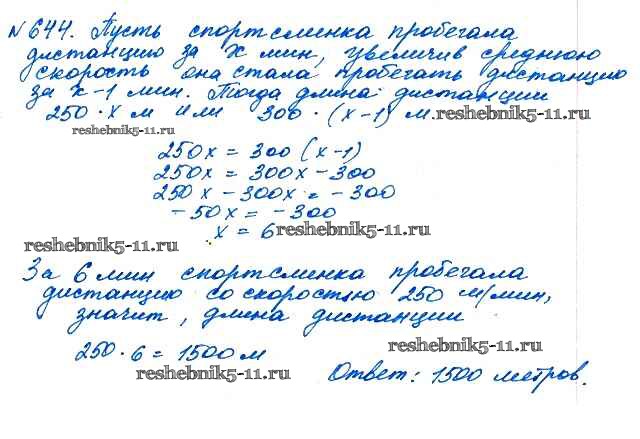 №644. Пусть спортсменка пробегала
дистанцию за x мин, увеличив среднюю
скорость она стала пробегать дистанцию
за x-1 мин. Тогда длина дистанции
250·x м или 300·(x-1) м.
reshebnik5-11.ru
reshebnik5-11.ru
250x = 300(x-1)
250x = 300x-300
250x-300x = -300
-50x = -300
x = 6
reshebnik5-11.ru
reshebnik5-11.ru
За 6 мин спортсменка пробегала
дистанцию со скоростью 250 м/мин,
значит, длина дистанции
250·6 = 1500 м
reshebnik5-11.ru
reshebnik5-11.ru
Ответ: 1500 метров.